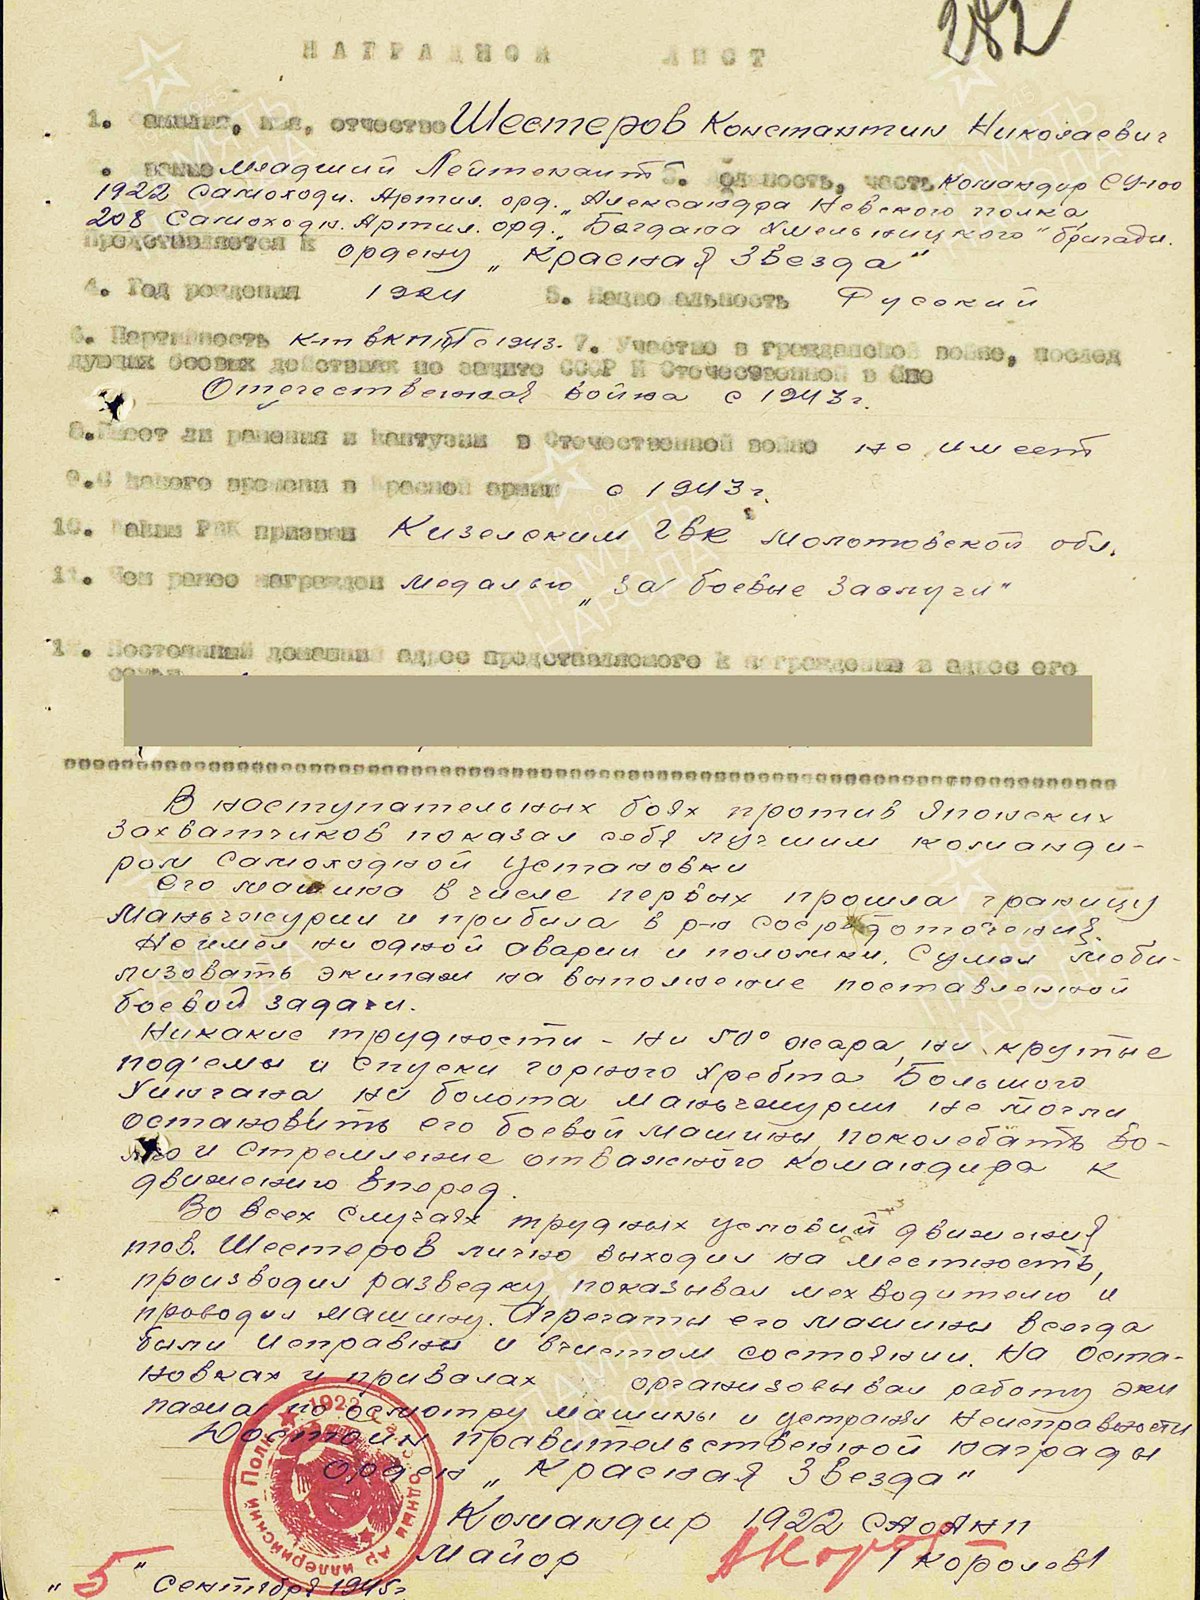 282
НАГРАДНОЙ ЛИСТ
1. Фамилия, имя, отчество Шестеров Константин Николаевич
звание младший Лейтенант 3. Должность, часть Командир СУ-100
1922 Самоходн. Артил. орд. „Александра Невского полка,
208 Самоходн. Артил. орд. „Богдана Хмельницкого" бригады.
Представляется к ордену „Красная Звезда"
4. Год рождения 1924 5. Национальность Русский
6. Партийность к-т ВКП/б/ с 1943. 7. Участие в гражданской войне, послед
дующих боевых действиях по защите СССР и Отечественной войне
Отечественная война с 1943 г.
8. Имеет ли ранения и контузии в Отечественной войне не имеет
9. С какого времени в Красной армии с 1943 г.
10. Каким РВК призван Кизеловским ГВК Молотовской обл.
11. Чем ранее награжден медалью „За боевые Заслуги"
12. Постоянный домашний адрес представляемого к награждению и адрес его
семьи
В наступательных боях против Японских
захватчиков показал себя лучшим команди-
ром самоходной установки
Его машина в числе первых прошла границу
Маньчжурии и прибыла в р-н сосредоточения.
Не имел ни одной аварии и поломки. Сумел моби-
лизовать экипаж на выполнение поставленной
боевой задачи.
Никакие трудности - ни 50° жара, ни крутые
под'емы и спуски горного хребта Большого
Хингана ни болота Маньчжурии не могли
остановить его боевой машины, поколебать во-
лю и стремление отважного командира к
движению вперед.
Во всех случаях трудных условий движения
тов. Шестеров лично выходил на местность,
производил разведку, показывал мехводителю и
проводил машину. Агрегаты его машины всегда
были исправны и в чистом состоянии. На оста-
новках и привалах организовывал работу эки
пажа по осмотру машины и устранял неисправности
Достоин правительственной награды
орден „Красная Звезда"
Командир 1922 САОАНП
Майор / Королев /
„5" Сентября 1945 г.